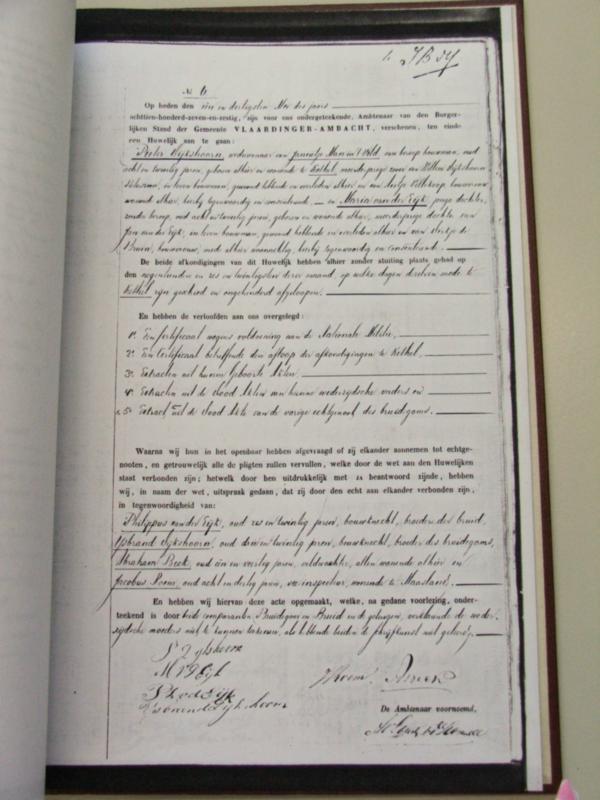 No 6
Op heden den een en dertigsten Mei des jaars
achttien-honderd-zeven-en-zestig, zijn voor ons ondergeteekende, Ambtenaar van den Burger-
lijken Stand der Gemeente VLAARDINGER-AMBACHT, verschenen, ten einde
een Huwelijk aan te gaan:
Pieter Dijkshoorn, weduwenaar van van beroep bouwman, oud
acht en twintig jaren, geboren alhier en wonende te Kethel, meerderjarige zoon van Willem Dijkshoorn
in leven bouwman, gewoond hebbende en overleden alhier en van bouwvrouw
wonende alhier, hierbij tegenwoordig en consenteerende. — en Maria van der Eijk, jonge dochter,
zonder beroep, oud acht en twintig jaren, geboren en wonende alhier, meerderjarige dochter van
Jan van der Eijk, in leven bouwman, gewoond hebbende en overleden alhier en van de
Bruin, bouwvrouw, mede alhier woonachtig, hierbij tegenwoordig en consenteerende.
De beide afkondigingen van dit Huwelijk hebben alhier zonder stuiting plaats gehad op
den negentienden en zes en twintigsten dezer maand, op welke dagen dezelven mede te
Kethel zijn geschied en ongehinderd afgeloopen.
En hebben de verloofden aan ons overgelegd:
1o. Een Certificaat wegens voldoening aan de Nationale Militie,
2o. Een Certificaat betreffende den afloop der afkondigingen te Kethel,
3o. Extracten uit hunne Geboorte Akten,
4o. Extracten uit de Dood Akten van hunne wederzijdsche vaders en
5o. Extract uit de Dood Akte van de vorige echtgenoot des bruidegoms.
Waarna wij hun in het openbaar hebben afgevraagd of zij elkander aannemen tot echtge-
nooten, en getrouwelijk alle de pligten zullen vervullen, welke door de wet aan den Huwelijken
staat verbonden zijn; hetwelk door hen uitdrukkelijk met ja beantwoord zijnde, hebben
wij, in naam der wet, uitspraak gedaan, dat zij door den echt aan elkander verbonden zijn,
in tegenwoordigheid van:
Philippus van der Eijk, oud zes en twintig jaren, bouwknecht, broeder der bruid,
IJsbrand Dijkshoorn, oud en twintig jaren, bouwknecht, broeder des bruidegoms,
Abraham Beek, oud een en veertig jaren, veldwachter, allen wonende alhier en
Jacobus Poons, oud acht en dertig jaren, vee inspecteur, wonende te Maasland.
En hebben wij hiervan deze acte opgemaakt, welke, na gedane voorlezing, onder-
teekend is door beide comparanten Bruidegom en Bruid en de getuigen, verklarende de weder-
zijdsche moeders niet te kunnen teekenen, als hebbende in de schrijfkunst niet geleerd.
P Dijkshoorn
M v d Eijk
P v d Eijk
De Ambtenaar voornoemd,